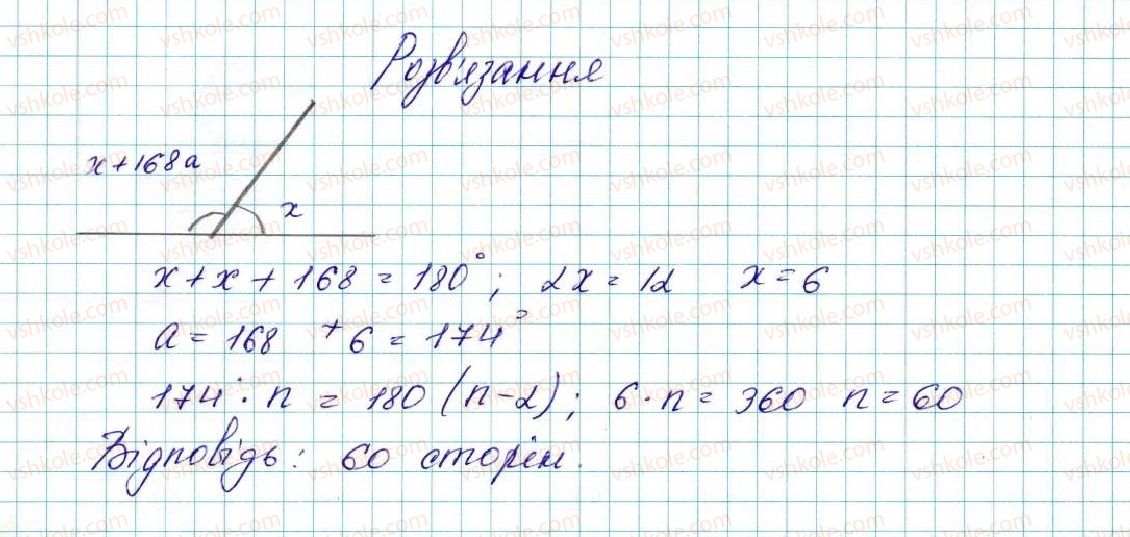 Розв'язання
x+168 a
x
x+x+168=180°; 2x=12 x=6
a=168 +6=174°
174°·n=180(n-2); 6·n=360 n=60
Відповідь: 60 сторін.
vshkole.com